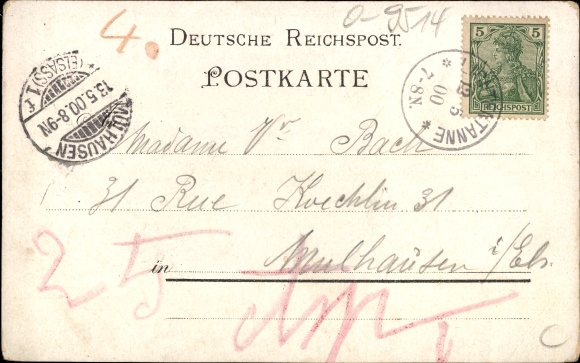 4.
0-9514
DEUTSCHE REICHSPOST.
POSTKARTE
5 5
REICHSPOST
MÜLHAUSEN
13.5.00.8-9N
(ELSASS) 1.f
7-8N
00
Madame Vve Bach
31 Rue Koechlin 31
in Mulhausen i/Els.
25